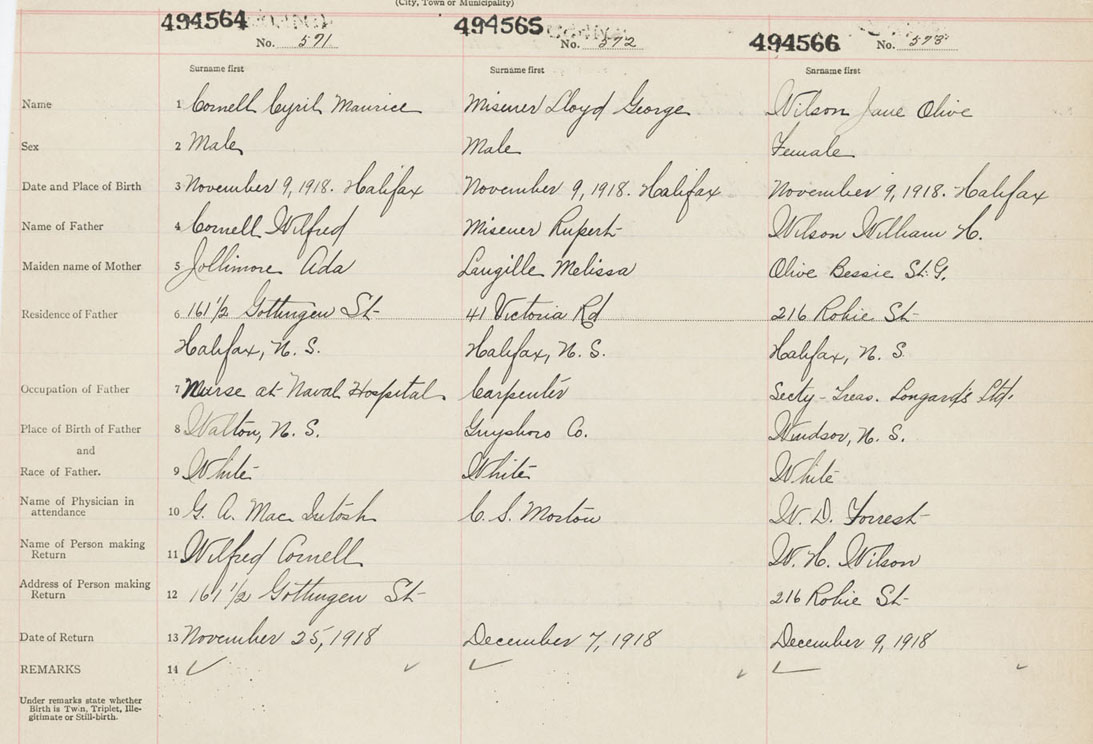 (City, Town or Municipality)
494564 494565 494566
No. 571 No. 572 No. 573
Surname first Surname first Surname first
Name 1 Cornell Cyril Maurice Misener Lloyd George Wilson Jane Olive
Sex 2 Male Male Female
Date and Place of Birth 3 November 9, 1918. Halifax November 9, 1918. Halifax November 9, 1918. Halifax
Name of Father 4 Cornell Wilfred Misener Rupert Wilson William H.
Maiden name of Mother 5 Jollimore Ada Langille Melissa Olive Bessie St. G.
Residence of Father 6 161 1/2 Gottingen St 41 Victoria Rd 216 Robie St
Halifax, N. S. Halifax, N. S. Halifax, N. S.
Occupation of Father 7 Nurse at Naval Hospital Carpenter Secty-Treas. Longard's Ltd.
Place of Birth of Father 8 Walton, N. S. Guysboro Co. Windsor, N. S.
and
Race of Father. 9 White White White
Name of Physician in
attendance 10 G. A. MacIntosh C. S. Morton W. D. Forrest
Name of Person making
Return 11 Wilfred Cornell W. H. Wilson
Address of Person making
Return 12 161 1/2 Gottingen St 216 Robie St
Date of Return 13 November 25, 1918 December 7, 1918 December 9, 1918
REMARKS 14
Under remarks state whether
Birth is Twin, Triplet, Ille-
gitimate or Still-birth.